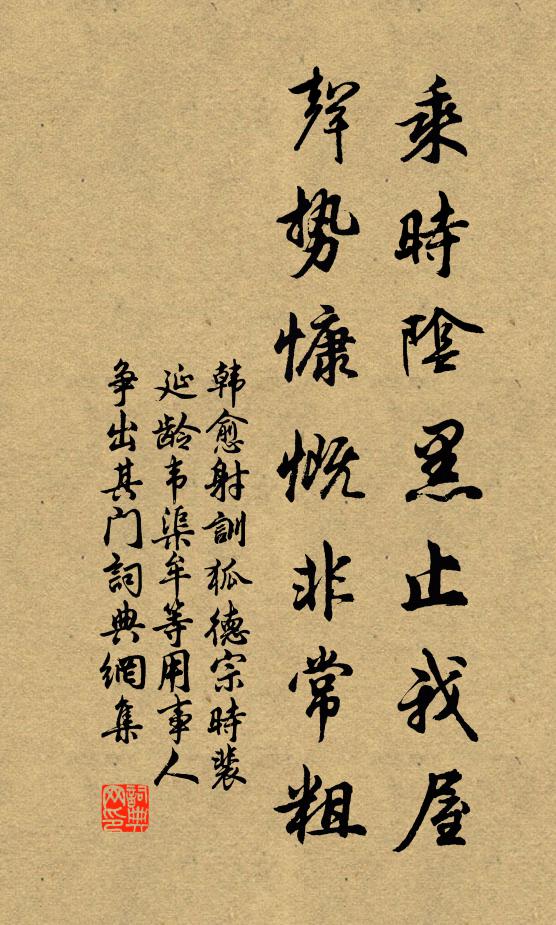 乘時陰黑止我屋
聲勢慷慨非常粗
韩愈射訓狐德宗時裴
延龄韦渠牟等用事人
争出其门詞典網集
詞典
网印